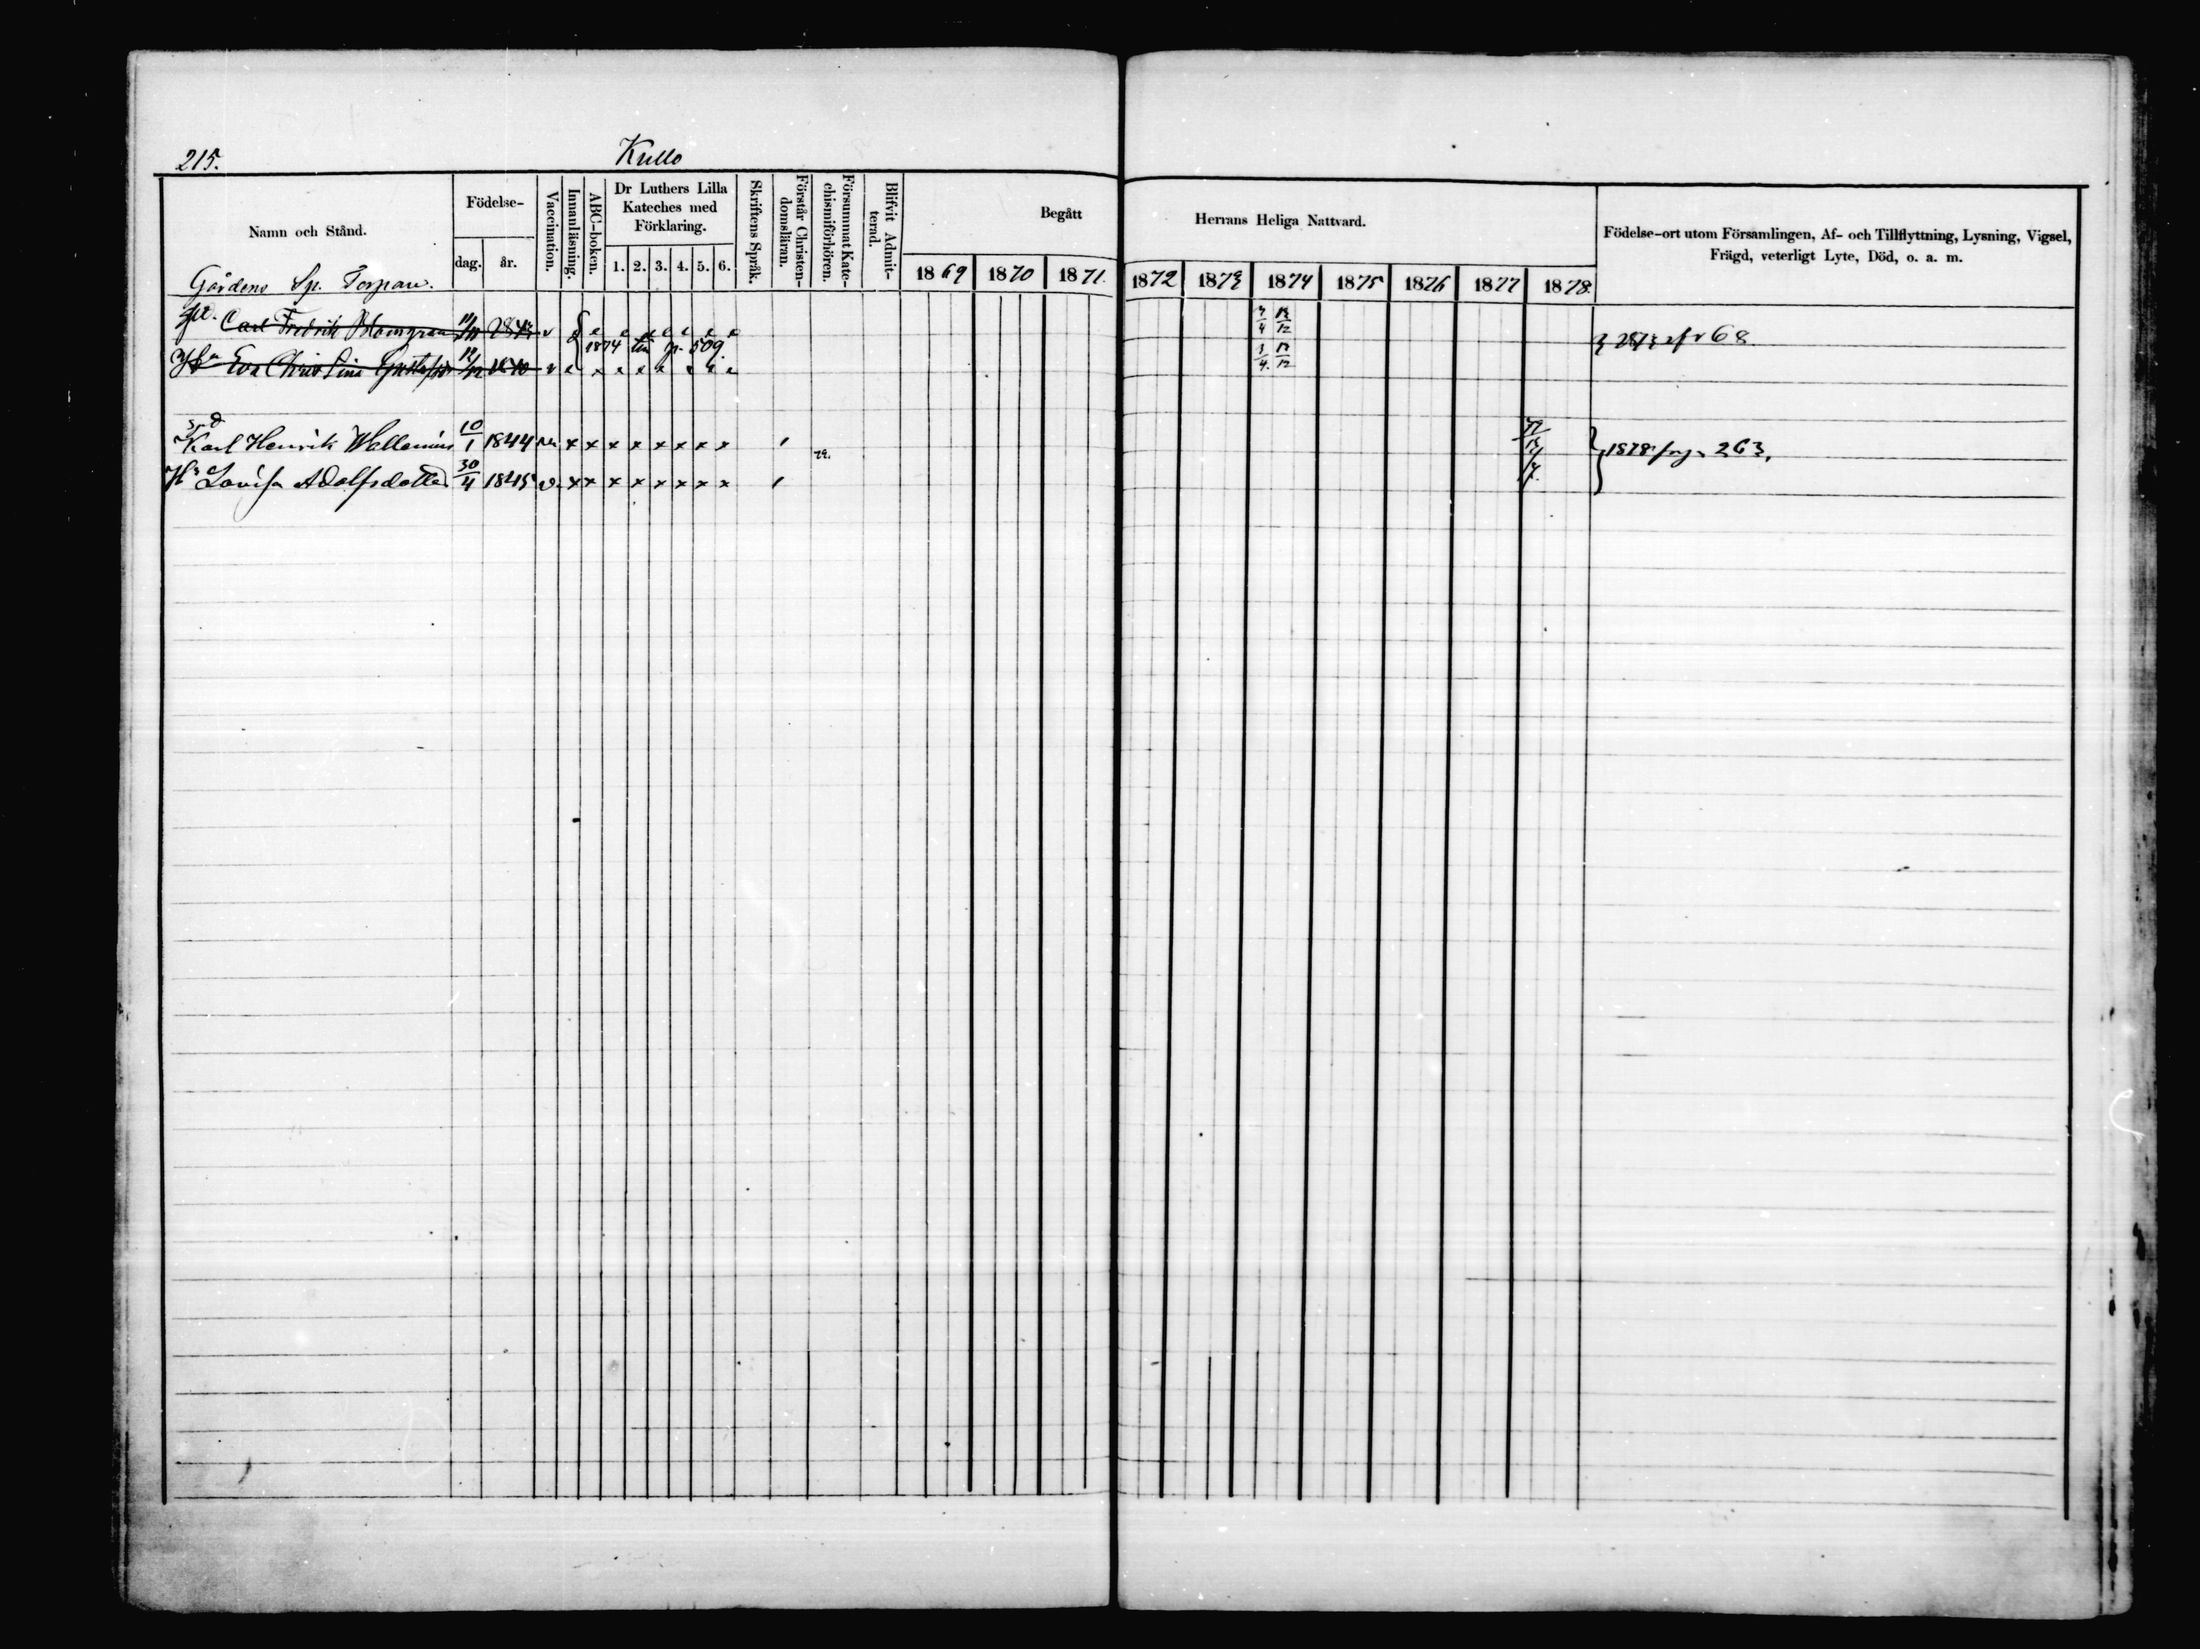 215.
Kullo
Namn och Stånd.
Födelse-
dag.
år.
Vaccination.
Innanläsning.
ABC-boken.
Dr Luthers Lilla
Kateches med
Förklaring.
1. 2. 3. 4. 5. 6.
Skriftens Språk.
Förstår Christen-
domsläran.
Försummat Kate-
chismiförhören.
Blifvit Admit-
terad.
Begått
Herrans Heliga Nattvard.
1869 1870 1871.
1872 1873 1874 1875 1876 1877 1878.
Födelse-ort utom Församlingen, Af- och Tillflyttning, Lysning, Vigsel,
Frägd, veterligt Lyte, Död, o. a. m.
Gårdens Sp. Torpare.
Carl Fredrik 11/11 v 68
1874 till p. 509.
Hu Eva Christina 1840 v
Karl Henrik Wallenius 10/1 1844 x x x x x x x x 1878 263.
Hu Lovisa Adolfsdotter 30/4 1845 v. x x x x x x x x